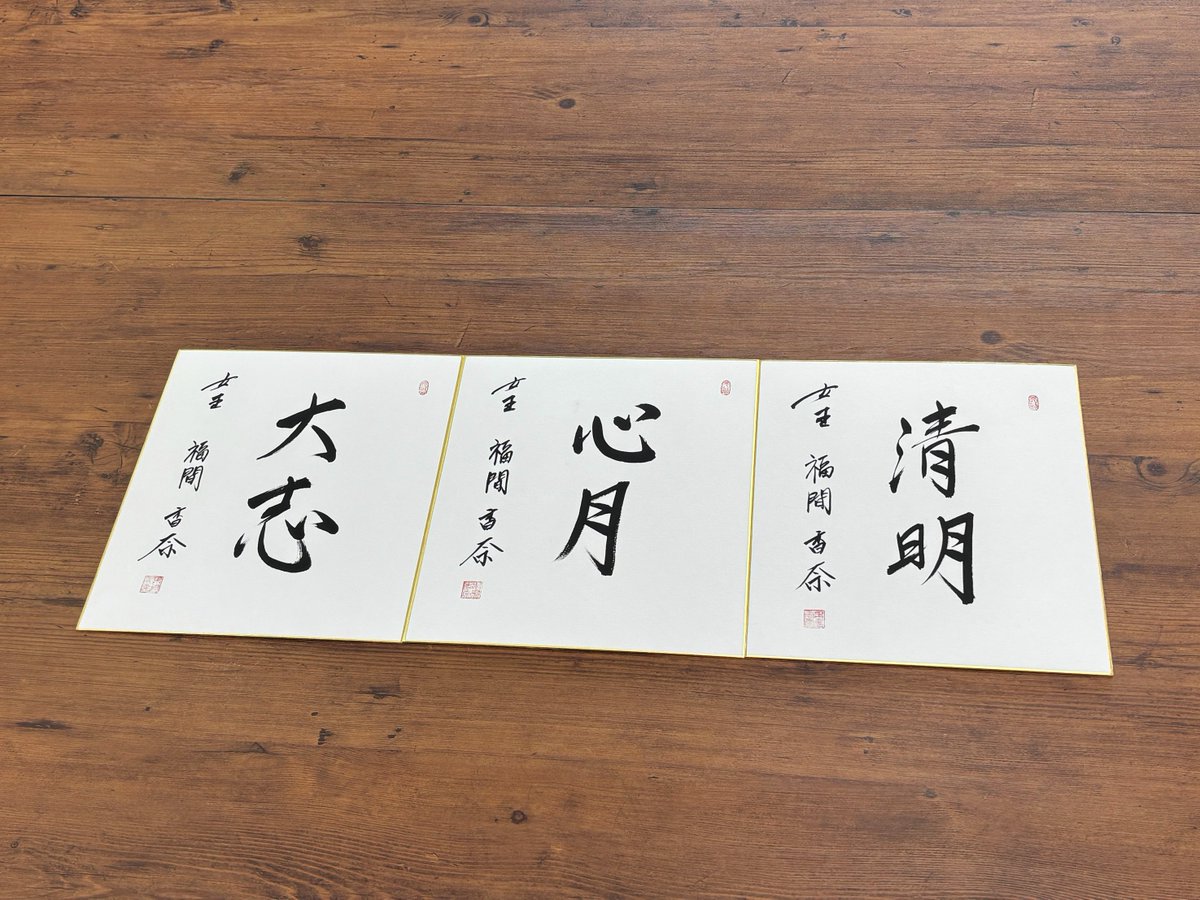 大志
女王 福間 香奈
心月
女王 福間 香奈
清明
女王 福間 香奈